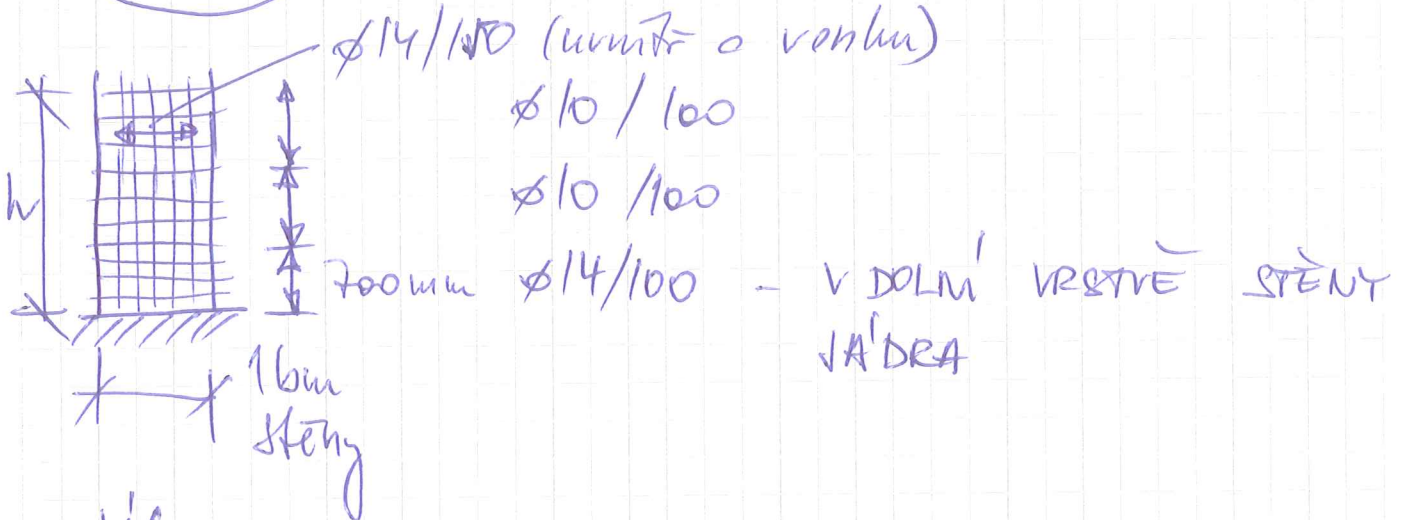 ⌀14/150 (uvnitř a venku)
⌀10/100
h
⌀10/100
700mm ⌀14/100 - V DOLNÍ VRSTVĚ STĚNY
JÁDRA
1bm
stěny